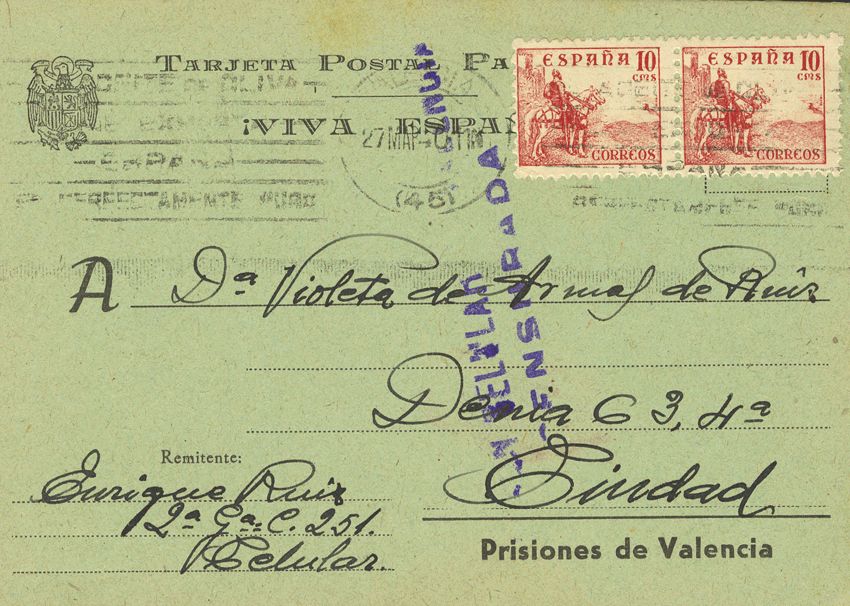 TARJETA POSTAL
ESPAÑA 10 CTMS
CORREOS
ESPAÑA 10 CTMS
CORREOS
¡VIVA ESPAÑ
27 MAR
(45)
PERFECTAMENTE PURO
CENSURADA
A Dª Violeta de Armas de Ruiz
Denia 63, 4ª
Ciudad
Prisiones de Valencia
Remitente:
Enrique Ruiz
2ª Gª C. 251.
Celular.